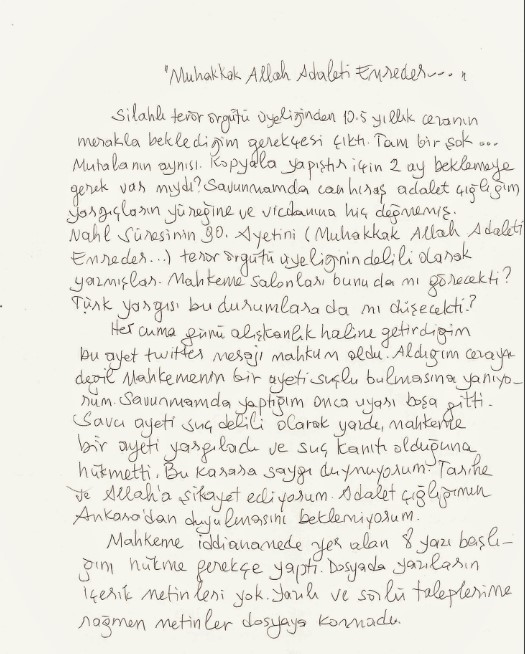 "Muhakkak Allah Adaleti Emreder...."
Silahlı terör örgütü üyeliğinden 10.5 yıllık cezanın
merakla beklediğim gerekçesi çıktı. Tam bir şok...
Mutalanın aynısı. Kopyala yapıştır için 2 ay beklemeye
gerek var mıydı? Savunmamda canhıraş adalet çığlığım
yargıçların yüreğine ve vicdanına hiç değmemiş.
Nahl Sûresinin 90. Ayetini (Muhakkak Allah Adaleti
Emreder...) terör örgütü üyeliğinin delili olarak
yazmışlar. Mahkeme salonları bunu da mı görecekti?
Türk yargısı bu durumlara da mı düşecekti?
Her cuma günü alışkanlık haline getirdiğim
bu ayet twitter mesajı mahkum oldu. Aldığım cezaya
değil Mahkemenin bir ayeti suçlu bulmasına yanıyo-
rum. Savunmamda yaptığım onca uyarı boşa gitti.
Savcı ayeti suç delili olarak yazdı, mahkeme
bir ayeti yargıladı ve suç kanıtı olduğuna
hükmetti. Bu karara saygı duymuyorum. Tarihe
ve Allah'a şikayet ediyorum. Adalet çığlığımın
Ankara'dan duyulmasını beklemiyorum.
Mahkeme iddianamede yer alan 8 yazı başlı-
ğını hükme gerekçe yaptı. Dosyada yazıların
içerik metinleri yok. Yazılı ve sözlü taleplerime
rağmen metinler dosyaya konmadı.